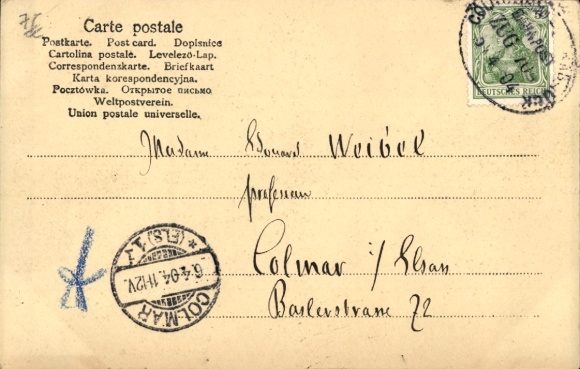 75
Carte postale
Postkarte. Post card. Dopisnice
Cartolina postale. Levelező-Lap.
Correspondenzkarte. Briefkaart
Karta korespondencyjna.
Pocztówka. Открытое письмо
Weltpostverein.
Union postale universelle.
DEUTSCHES REICH
BAHNPOST
ZUG
4 04
Madame Edouard Weibel
professeur
Colmar i/Elsass
Baslerstrasse 72
COLMAR
* (ELS) 1
6.4.04.11-12V.